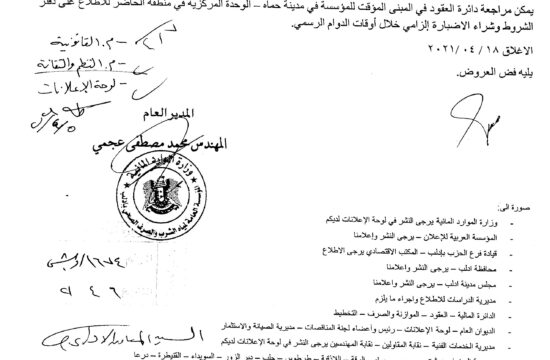 يمكن مراجعة دائرة العقود في المبنى المؤقت للمؤسسة في مدينة حماه – الوحدة المركزية في منطقة الحاضر للاطلاع على دفتر
الشروط وشراء الاضبارة إلزامي خلال أوقات الدوام الرسمي.
الاغلاق ١٨ / ٠٤ / ٢٠٢١
يليه فض العروض.
م.القانونية
م. النظم والتقانة
لوحة الإعلانات
المدير العام
المهندس محمد مصطفى عجمي
وزارة الموارد المائية
صورة الى:
- وزارة الموارد المائية يرجى النشر في لوحة الإعلانات لديكم
- المؤسسة العربية للإعلان – يرجى النشر وإعلامنا
- قيادة فرع الحزب بإدلب – المكتب الاقتصادي يرجى الاطلاع
- محافظة ادلب – يرجى النشر واعلامنا
- مجلس مدينة ادلب – يرجى النشر واعلامنا
- مديرية الدراسات للاطلاع واجراء ما يلزم
- الدائرة المالية – العقود – الموازنة والصرف – التخطيط
- الديوان العام – لوحة الإعلانات – رئيس وأعضاء لجنة المناقصات – مديرية الصيانة والاستثمار
- مديرية الخدمات الفنية – نقابة المقاولين – نقابة المهندسين يرجى النشر في لوحة الإعلانات لديكم
طرطوس – حلب – دير الزور – السويداء – القنيطرة – درعا